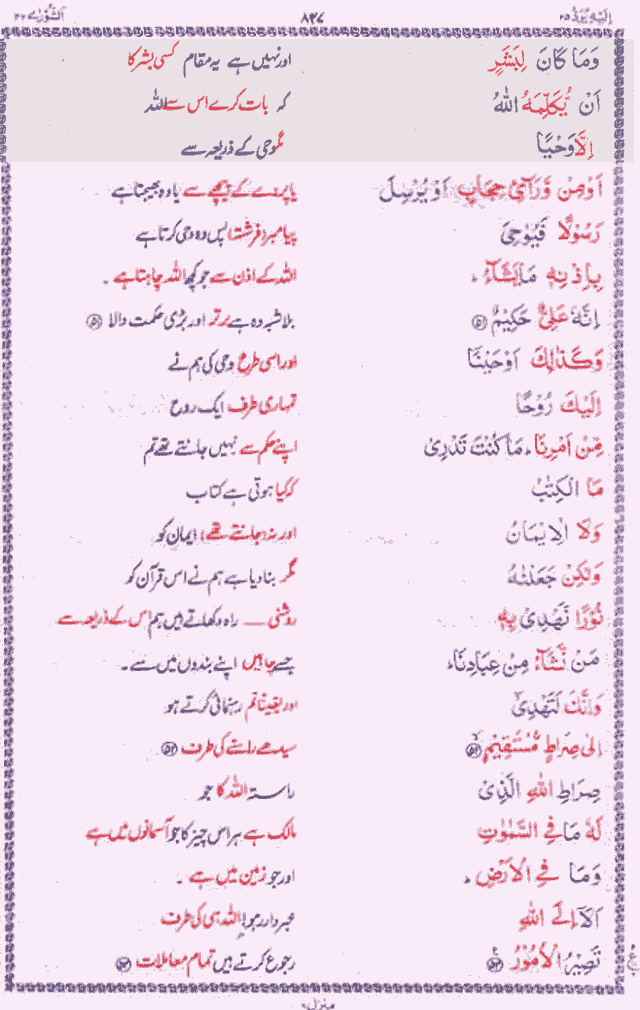 اِلَيْهِ يُرَدُّ ٢٥ ٨٣٧ اَلشُّوْرٰى ٤٢
وَمَا كَانَ لِبَشَرٍ اور نہیں ہے یہ مقام کسی بشر کا
اَنْ يُّكَلِّمَهُ اللّٰهُ کہ بات کرے اس سے اللہ
اِلَّا وَحْيًا مگر وحی کے ذریعہ سے
اَوْ مِنْ وَّرَآئِ حِجَابٍ اَوْ يُرْسِلَ یا پردے کے پیچھے سے یا وہ بھیجتا ہے
رَسُوْلًا فَيُوْحِيَ پیامبر (فرشتہ) پس وہ وحی کرتا ہے
بِاِذْنِهٖ مَا يَشَآءُ ؕ اللہ کے اذن سے جو کچھ اللہ چاہتا ہے ۔
اِنَّهٗ عَلِيٌّ حَكِيْمٌ ﴿٥١﴾ بلاشبہ وہ ہے برتر اور بڑی حکمت والا ﴿٥١﴾
وَكَذٰلِكَ اَوْحَيْنَآ اور اسی طرح وحی کی ہم نے
اِلَيْكَ رُوْحًا تمہاری طرف ایک روح
مِّنْ اَمْرِنَا ؕ مَا كُنْتَ تَدْرِىْ اپنے حکم سے نہیں جانتے تھے تم
مَا الْكِتٰبُ کہ کیا ہوتی ہے کتاب
وَلَا الْاِيْمَانُ اور نہ (جانتے تھے) ایمان کو
وَلٰكِنْ جَعَلْنٰهُ مگر بنا دیا ہے ہم نے اس قرآن کو
نُوْرًا نَّهْدِىْ بِهٖ روشنی — راہ دکھلاتے ہیں ہم اس کے ذریعہ سے
مَنْ نَّشَآءُ مِنْ عِبَادِنَا ؕ جسے چاہیں اپنے بندوں میں سے ۔
وَاِنَّكَ لَتَهْدِىْٓ اور یقیناً تم رہنمائی کرتے ہو
اِلٰى صِرَاطٍ مُّسْتَقِيْمٍ ﴿٥٢﴾ سیدھے راستے کی طرف ﴿٥٢﴾
صِرَاطِ اللّٰهِ الَّذِىْ راستہ اللہ کا جو
لَهٗ مَا فِى السَّمٰوٰتِ مالک ہے ہر اس چیز کا جو آسمانوں میں ہے
وَمَا فِى الْاَرْضِ ؕ اور جو زمین میں ہے ۔
اَلَآ اِلَى اللّٰهِ خبردار رہو! اللہ ہی کی طرف
تَصِيْرُ الْاُمُوْرُ ﴿٥٣﴾ رجوع کرتے ہیں تمام معاملات ﴿٥٣﴾